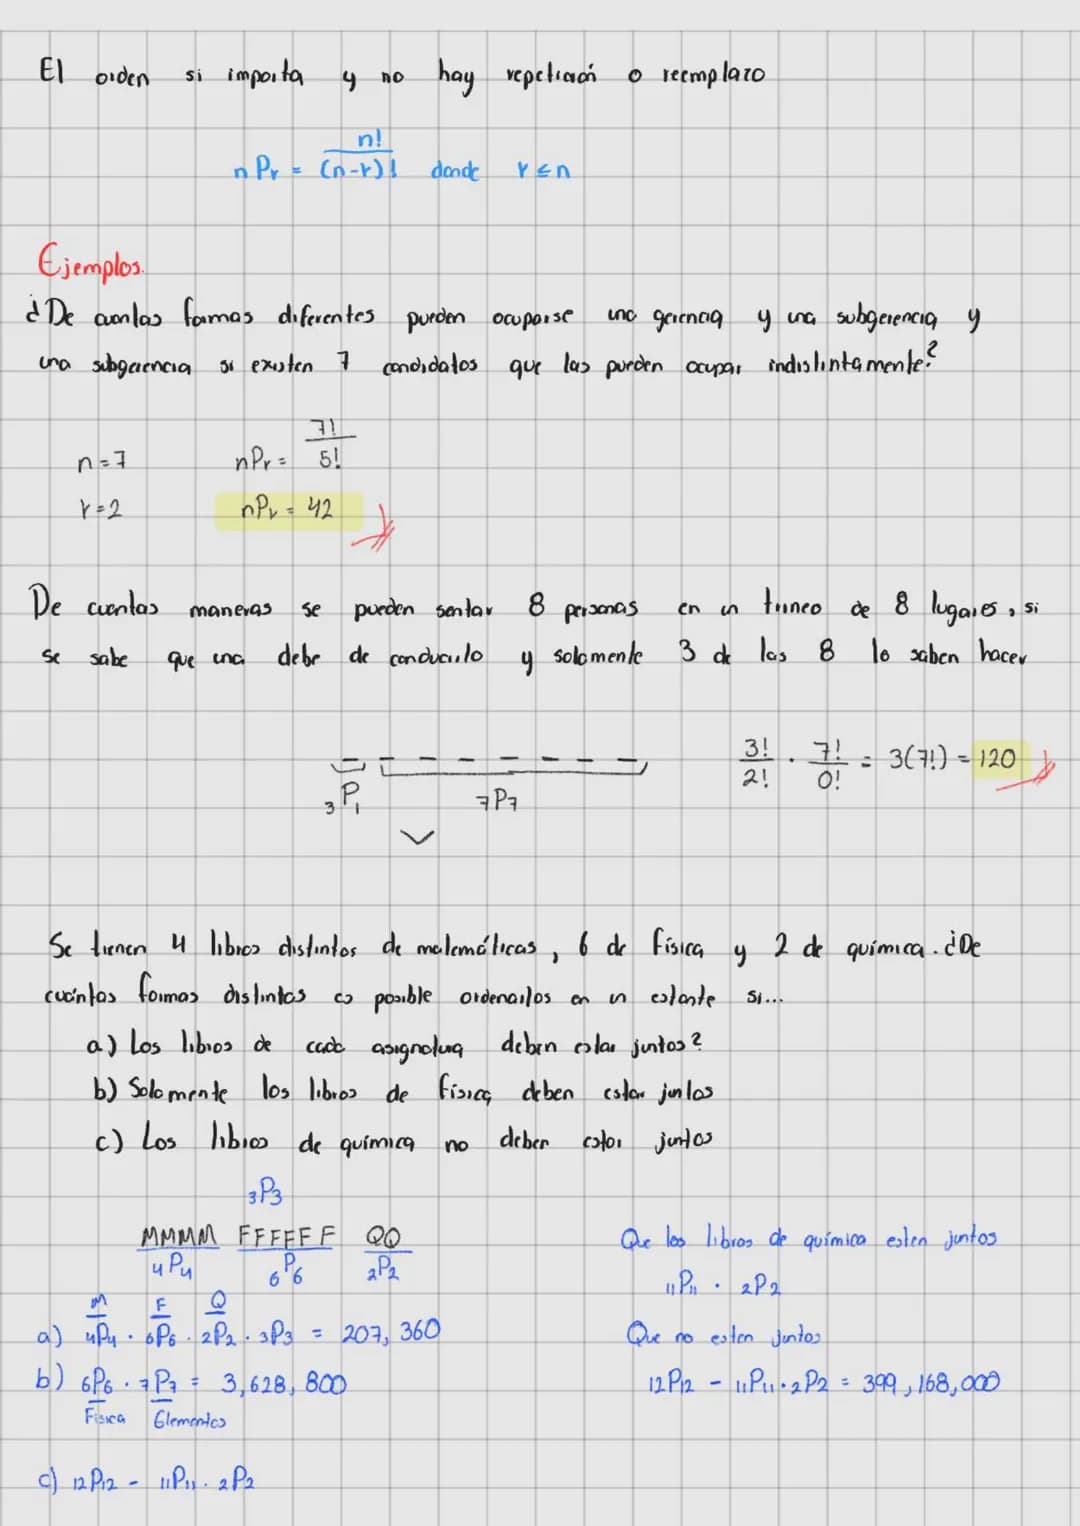 El orden si importa y no hay repetición o reemplazo
nPr = n!/(n-r)! donde r≤n
Ejemplos.
¿De cuantas formas diferentes pueden ocuparse una gerencia y una subgerencia y
una subgerencia si existen 7 candidatos que las pueden ocupar indistintamente?
n=7 nPr = 7!/5!
r=2 nPr = 42
De cuantas maneras se pueden sentar 8 personas en un trineo de 8 lugares, si
se sabe que una debe de conducirlo y solamente 3 de las 8 lo saben hacer
3!/2! · 7!/0! = 3(7!) = 120
3P1 7P7
Se tienen 4 libros distintos de matemáticas, 6 de física y 2 de química. ¿De
cuántas formas distintas es posible ordenarlos en un estante si...
a) Los libros de cada asignatura deben estar juntos?
b) Solamente los libros de física deben estar juntos
c) Los libros de química no deben estar juntos
3P3
MMMM FFFFFF QQ
4P4 6P6 2P2
M F Q
a) 4P4 · 6P6 · 2P2 · 3P3 = 207,360
b) 6P6 · 7P7 = 3,628,800
Física Elementos
c) 12P12 - 11P11 · 2P2
Que los libros de química esten juntos
11P11 · 2P2
Que no esten juntos
12P12 - 11P11 · 2P2 = 399,168,000